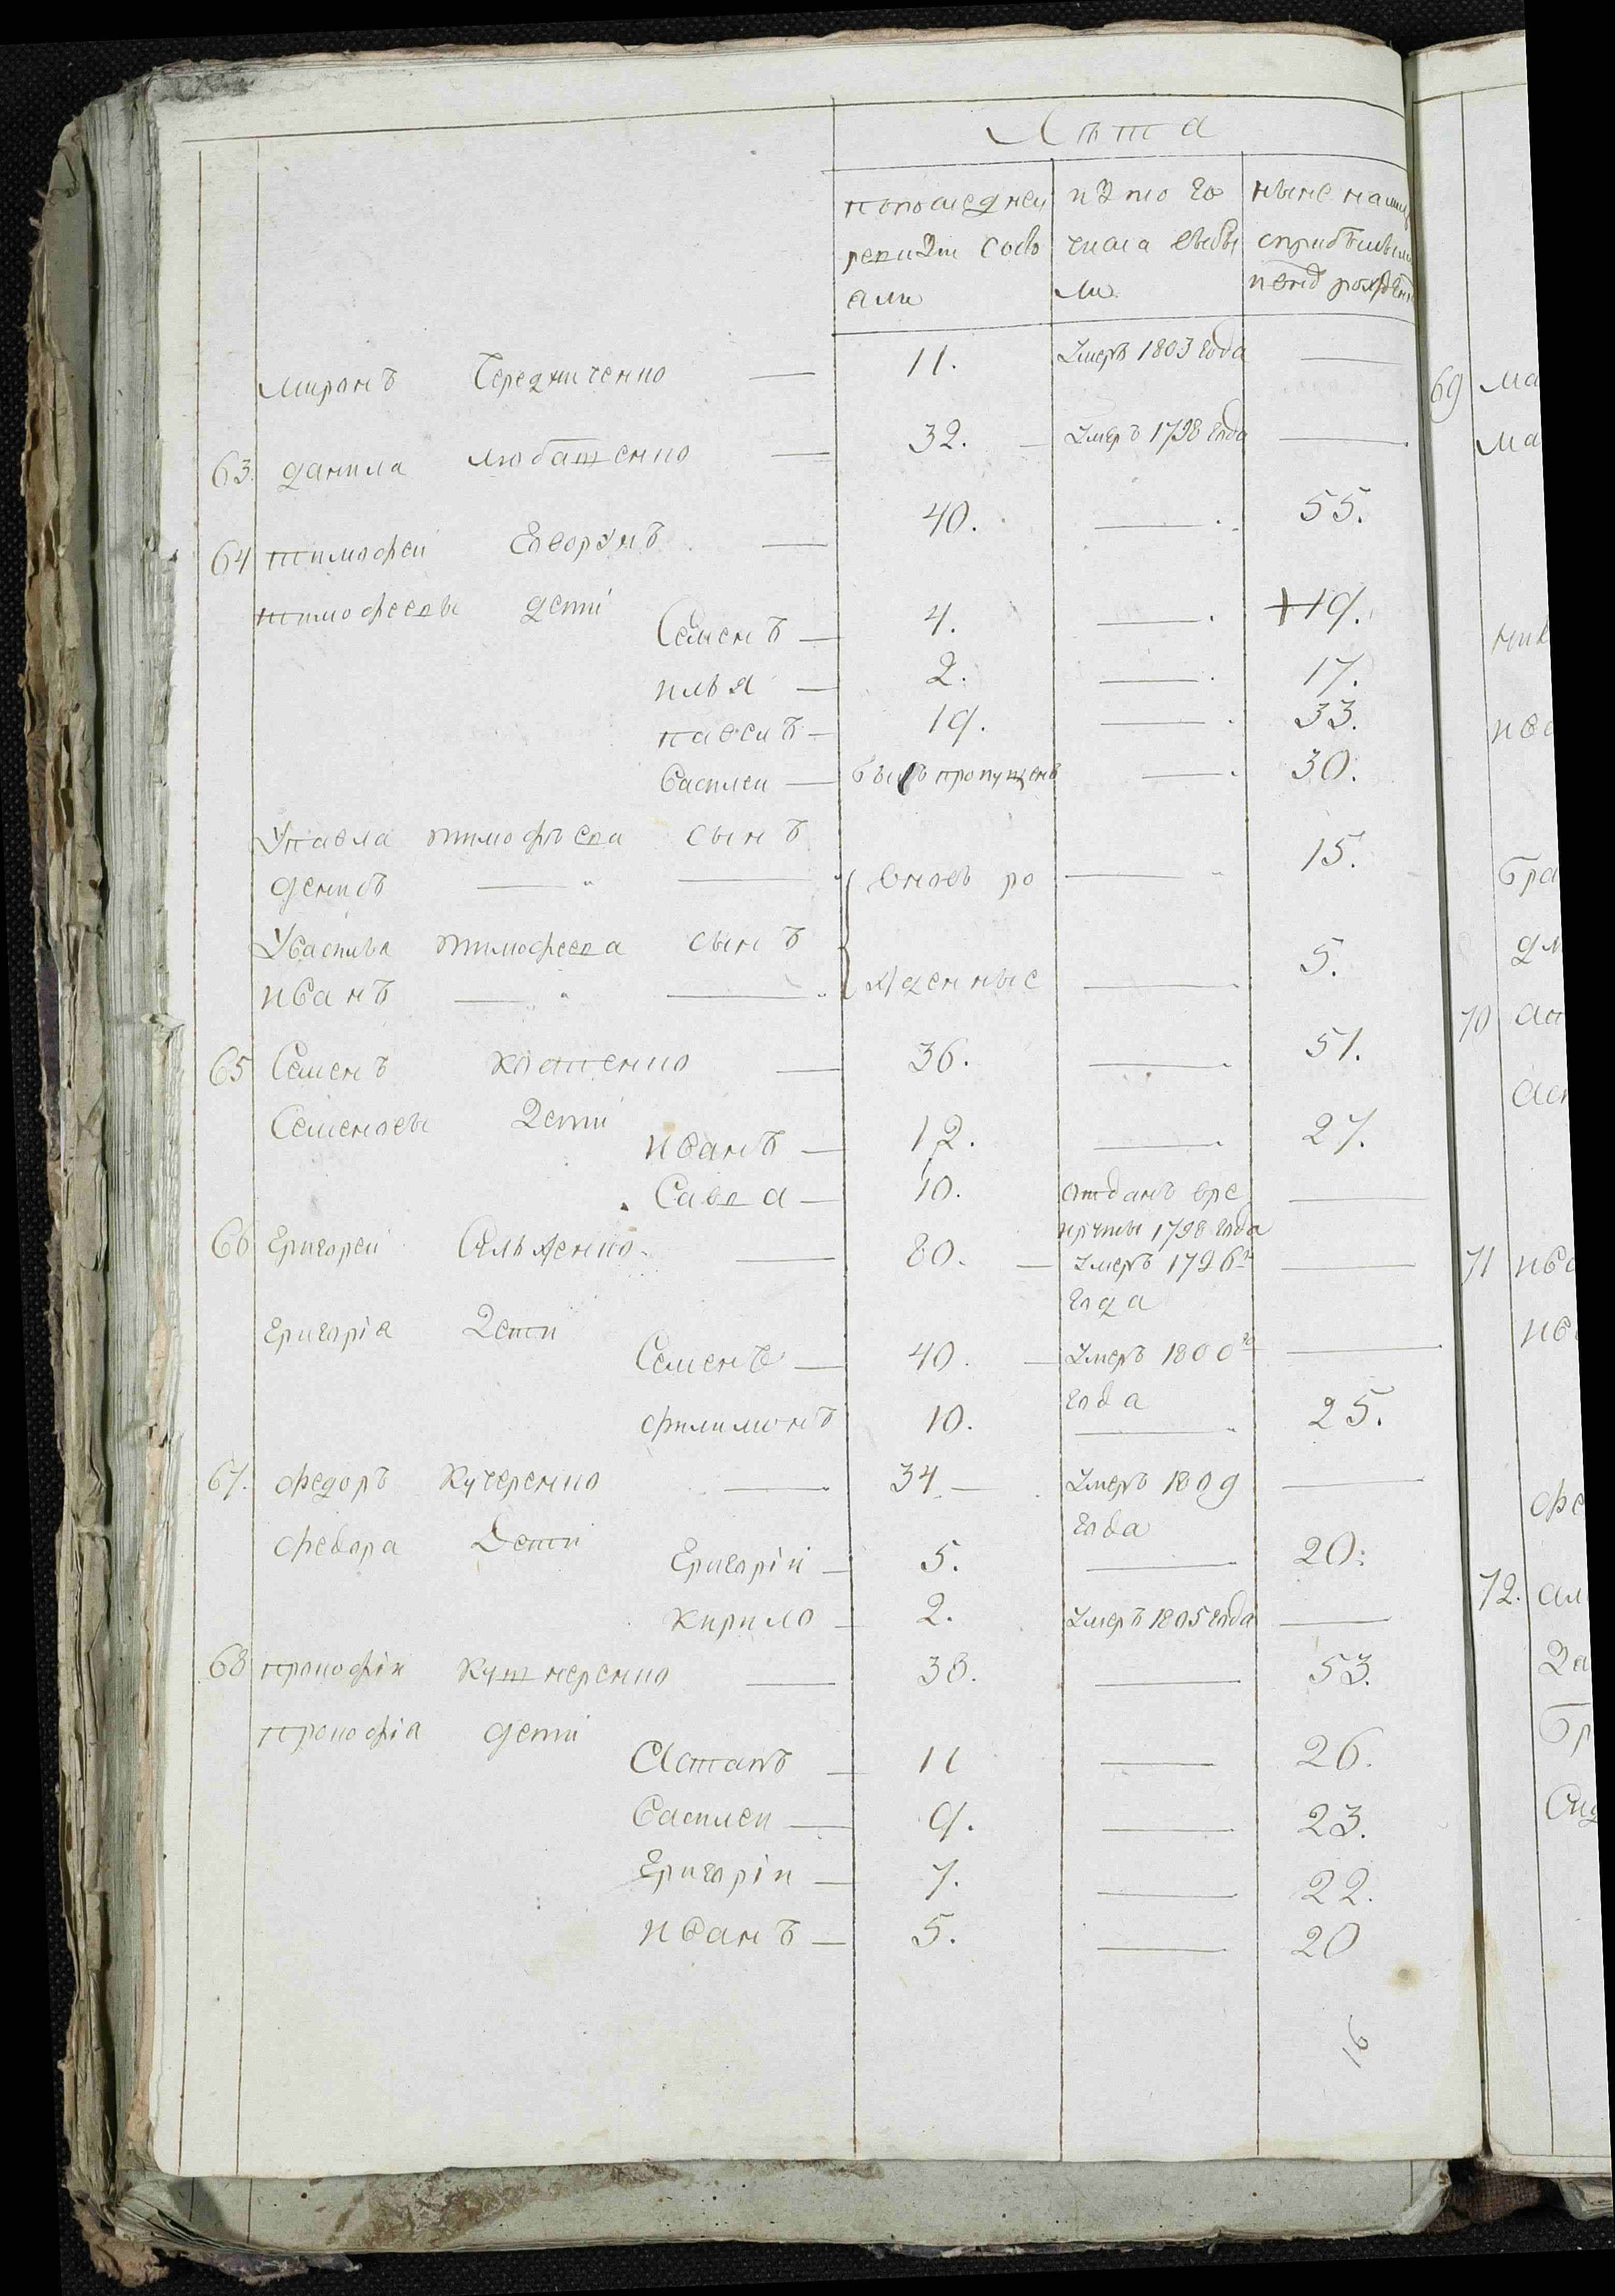 Лѣта
попоследней изтого ныне на лицо
ревизiи состо числа выбы сприбылыми
яли ли ипослѣ рожденн
Миронъ Чередниченко — 11. Умеръ 1803 года —
63. Данила Любатенко — 32. — Умеръ 1798 года —
64 Тимофей Говорунъ — 40. — 55.
Тимофеевы дети
Семенъ — 4. — 19.
Илья — 2. — 17.
Павелъ — 19. — 33.
Василей — былъ пропущенъ — 30.
У Павла Тимофѣева сынъ
Демидъ — — вновь ро — 15.
У Василья Тимофеева сынъ
Иванъ — — жденные — 5.
65 Семенъ Костенко — 36. — 51.
Семеновы дети
Иванъ — 12. — 27.
Савва — 10. отданъ в ре —
круты 1798 года
66 Григорей Сильженко — 80. — Умеръ 1796го —
года
Григорiя дети
Семенъ — 40. — Умеръ 1800го —
года
Филимонъ 10. — 25.
67. Федоръ Кучеренко — 34 — Умеръ 1809 —
года
Федора дети
Григорiй — 5. — 20.
Кирило — 2. Умеръ 1805 года —
68 Прокофiй Кушнеренко — 38. — 53.
Прокофiя дети
Астапъ — 11 — 26.
Василей — 9. — 23.
Григорiй — 7. — 22.
Иванъ — 5. — 20
16
69 Ма
Ма
Ник
Ива
Бра
70
71 Ива
Ив
Фе
72.
Бр